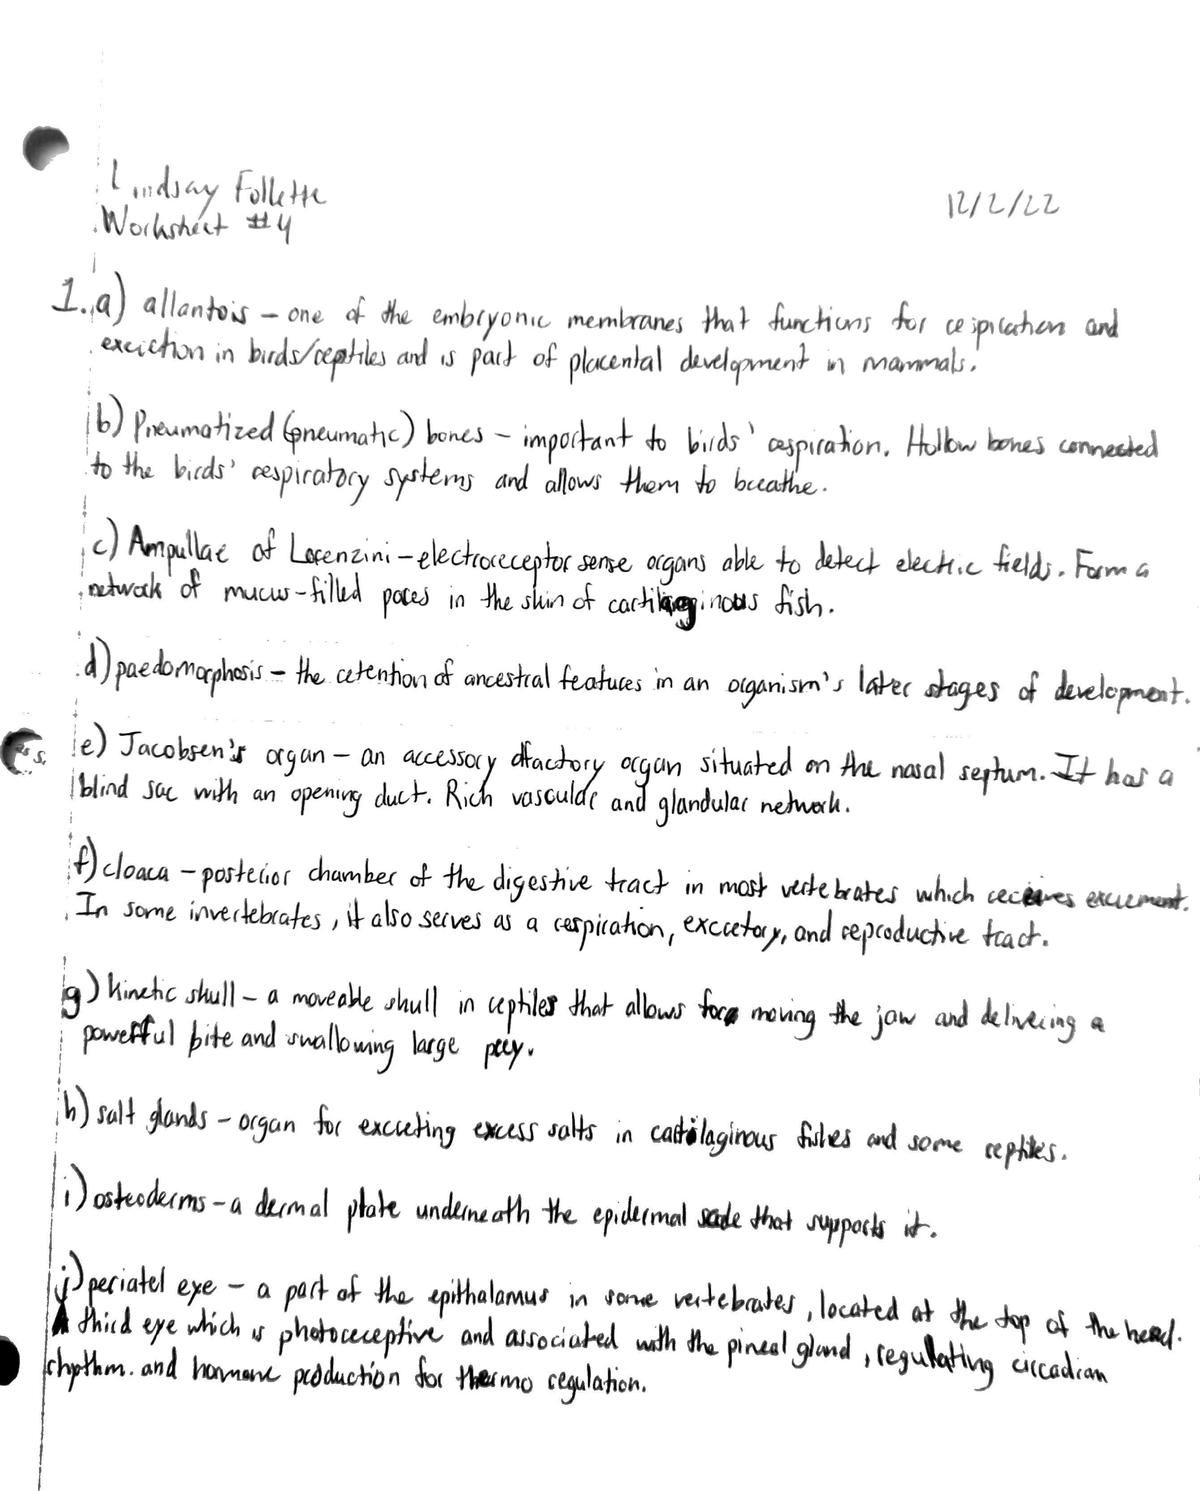 Lindsay Follette
12/2/22
Worksheet #4
1. a) allantois - one of the embryonic membranes that functions for respiration and
excretion in birds/reptiles and is part of placental development in mammals.
b) Pneumatized (pneumatic) bones - important to birds' respiration. Hollow bones connected
to the birds' respiratory systems and allows them to breathe.
c) Ampullae of Lorenzini - electroreceptor sense organs able to detect electric fields. Form a
network of mucus-filled pores in the skin of cartilaginous fish.
d) paedomorphosis - the retention of ancestral features in an organism's later stages of development.
e) Jacobsen's organ - an accessory olfactory organ situated on the nasal septum. It has a
blind sac with an opening duct. Rich vascular and glandular network.
f) cloaca - posterior chamber of the digestive tract in most vertebrates which receives excrement.
In some invertebrates, it also serves as a respiration, excretory, and reproductive tract.
g) kinetic skull - a moveable skull in reptiles that allows for moving the jaw and delivering a
powerful bite and swallowing large prey.
h) salt glands - organ for excreting excess salts in cartilaginous fishes and some reptiles.
i) osteoderms - a dermal plate underneath the epidermal scale that supports it.
j) periatel eye - a part of the epithalamus in some vertebrates, located at the top of the head.
A third eye which is photoreceptive and associated with the pineal gland, regulating circadian
rhythm. and hormone production for thermo regulation.